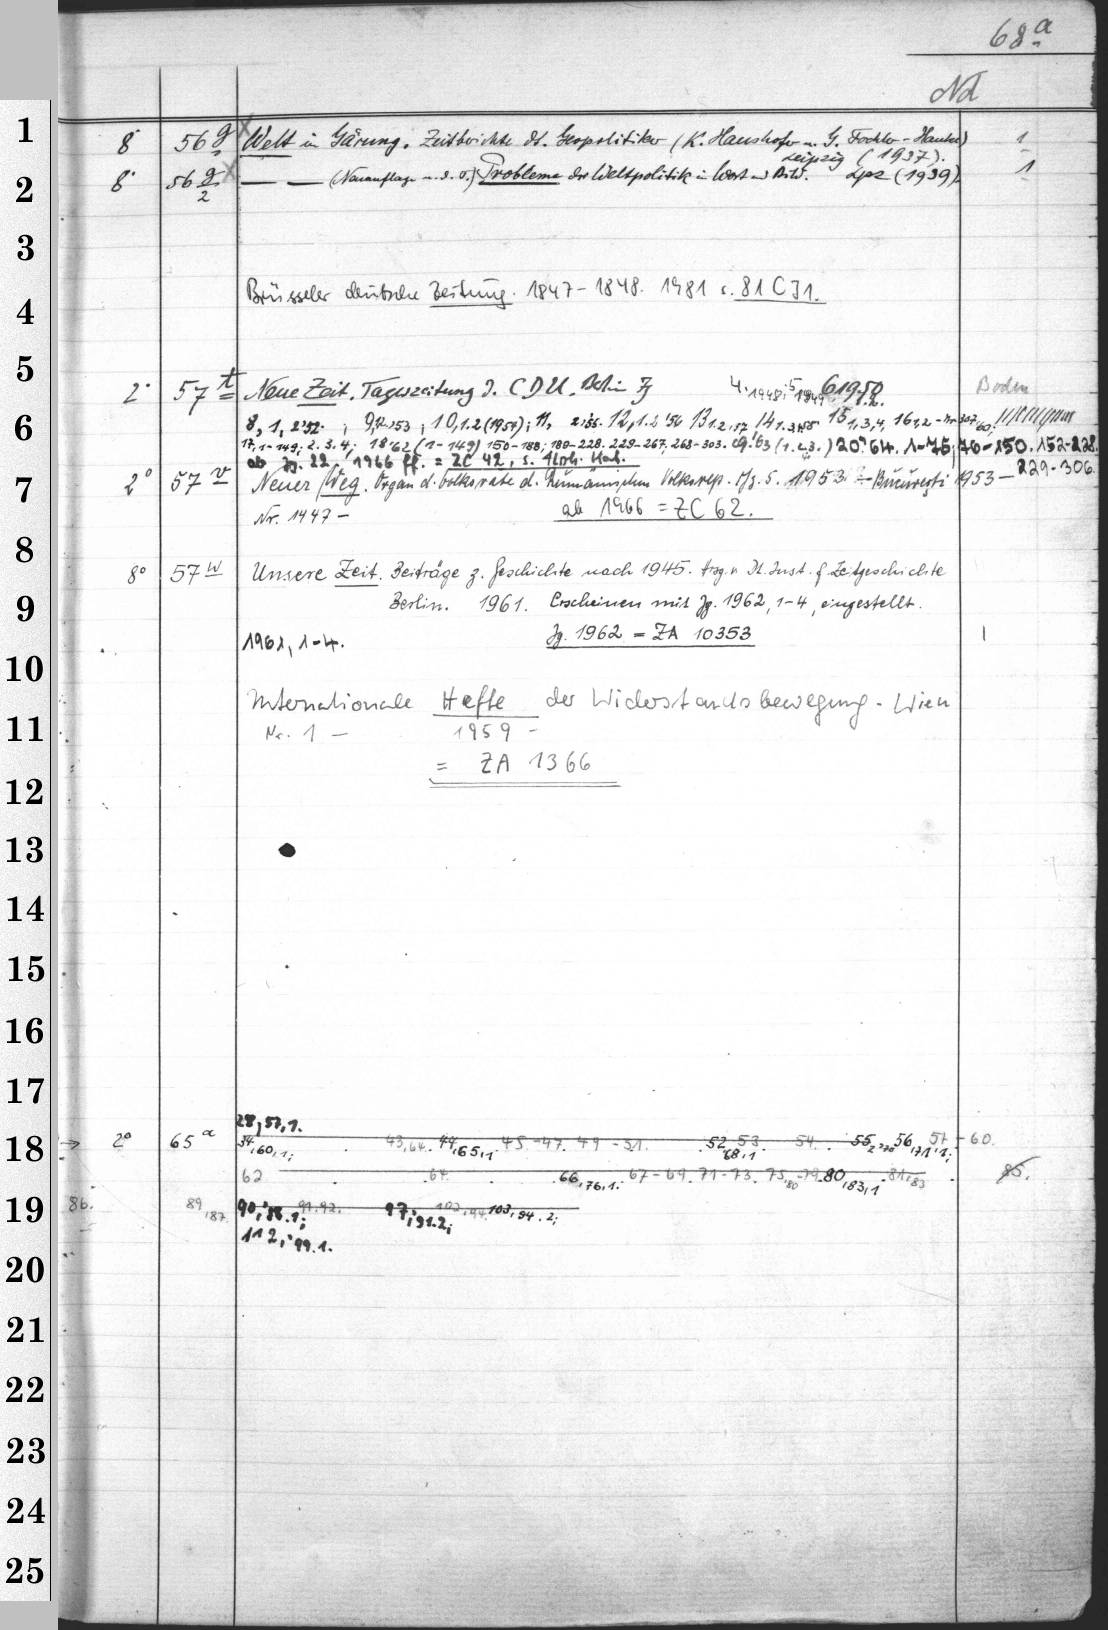 68a
Nd
1 8° 56 g Welt in Gärung. Zeitberichte dt. Geopolitiker (K. Haushofer u. G. Fochler-Hauke) 1
Leipzig (1937).
2 8° 56 g/2 — — (Neuauflage u. d. T.) Probleme der Weltpolitik in Wort und Bild. Lpz (1939) 1
3
Brüsseler deutsche Zeitung. 1847-1848. 1981 s. 81 C 31.
4
5
2° 57 t Neue Zeit. Tageszeitung d. CDU. Berlin Jg 4.1948; 5 1949 6 1950 1.2. Boden
6 8, 1, 2'52. ; 9,1-2'53 ; 10,1.2(1954); 11, 2'55. 12,1.2'56 13 1.2,57 14 1.3.4'58 15 1,3,4, 16 1,2 - Nr 307 60;
17, 1-149; 2.3.4; 18'62 (1-149) 150-188; 189-228. 229-267, 268-303. 19'63 (1.2.3.) 20'64. 1-75, 76-150. 152-228.
ab Jg. 22. 1966 ff. = ZC 42, s. Alph. Kat. 229-306
7 2° 57 v Neuer Weg. Organ d. Volksräte d. Rumänischen Volksrep. Jg. 5. 1953 - București 1953 -
Nr. 1447 - ab 1966 = ZC 62.
8
8° 57 w Unsere Zeit. Beiträge z. Geschichte nach 1945. Hrsg. v. Dt. Inst. f. Zeitgeschichte
9 Berlin. 1961. Erscheinen mit Jg. 1962, 1-4, eingestellt.
1962, 1-4. Jg. 1962 = ZA 10353 1
10
Internationale Hefte der Widerstandsbewegung - Wien
11 Nr. 1 - 1959 -
= ZA 1366
12
13
14
15
16
17
28, 57, 1.
18 → 2° 65 a 34, 60, 1; 43, 64. 44, 65, 1 45-47. 49-51. 52 53. 68, 1 54. 55 2'70 56, 71, 1; 57 - 60.
62 64. 66, 76, 1. 67-69. 71-73. 75, 80 -79. 80, 83, 1. 81, 83 85.
19 86. 89, 87. 91.92. 97, 91.2; 102, 94. 103, 94. 2;
112, 99. 1.
20
21
22
23
24
25